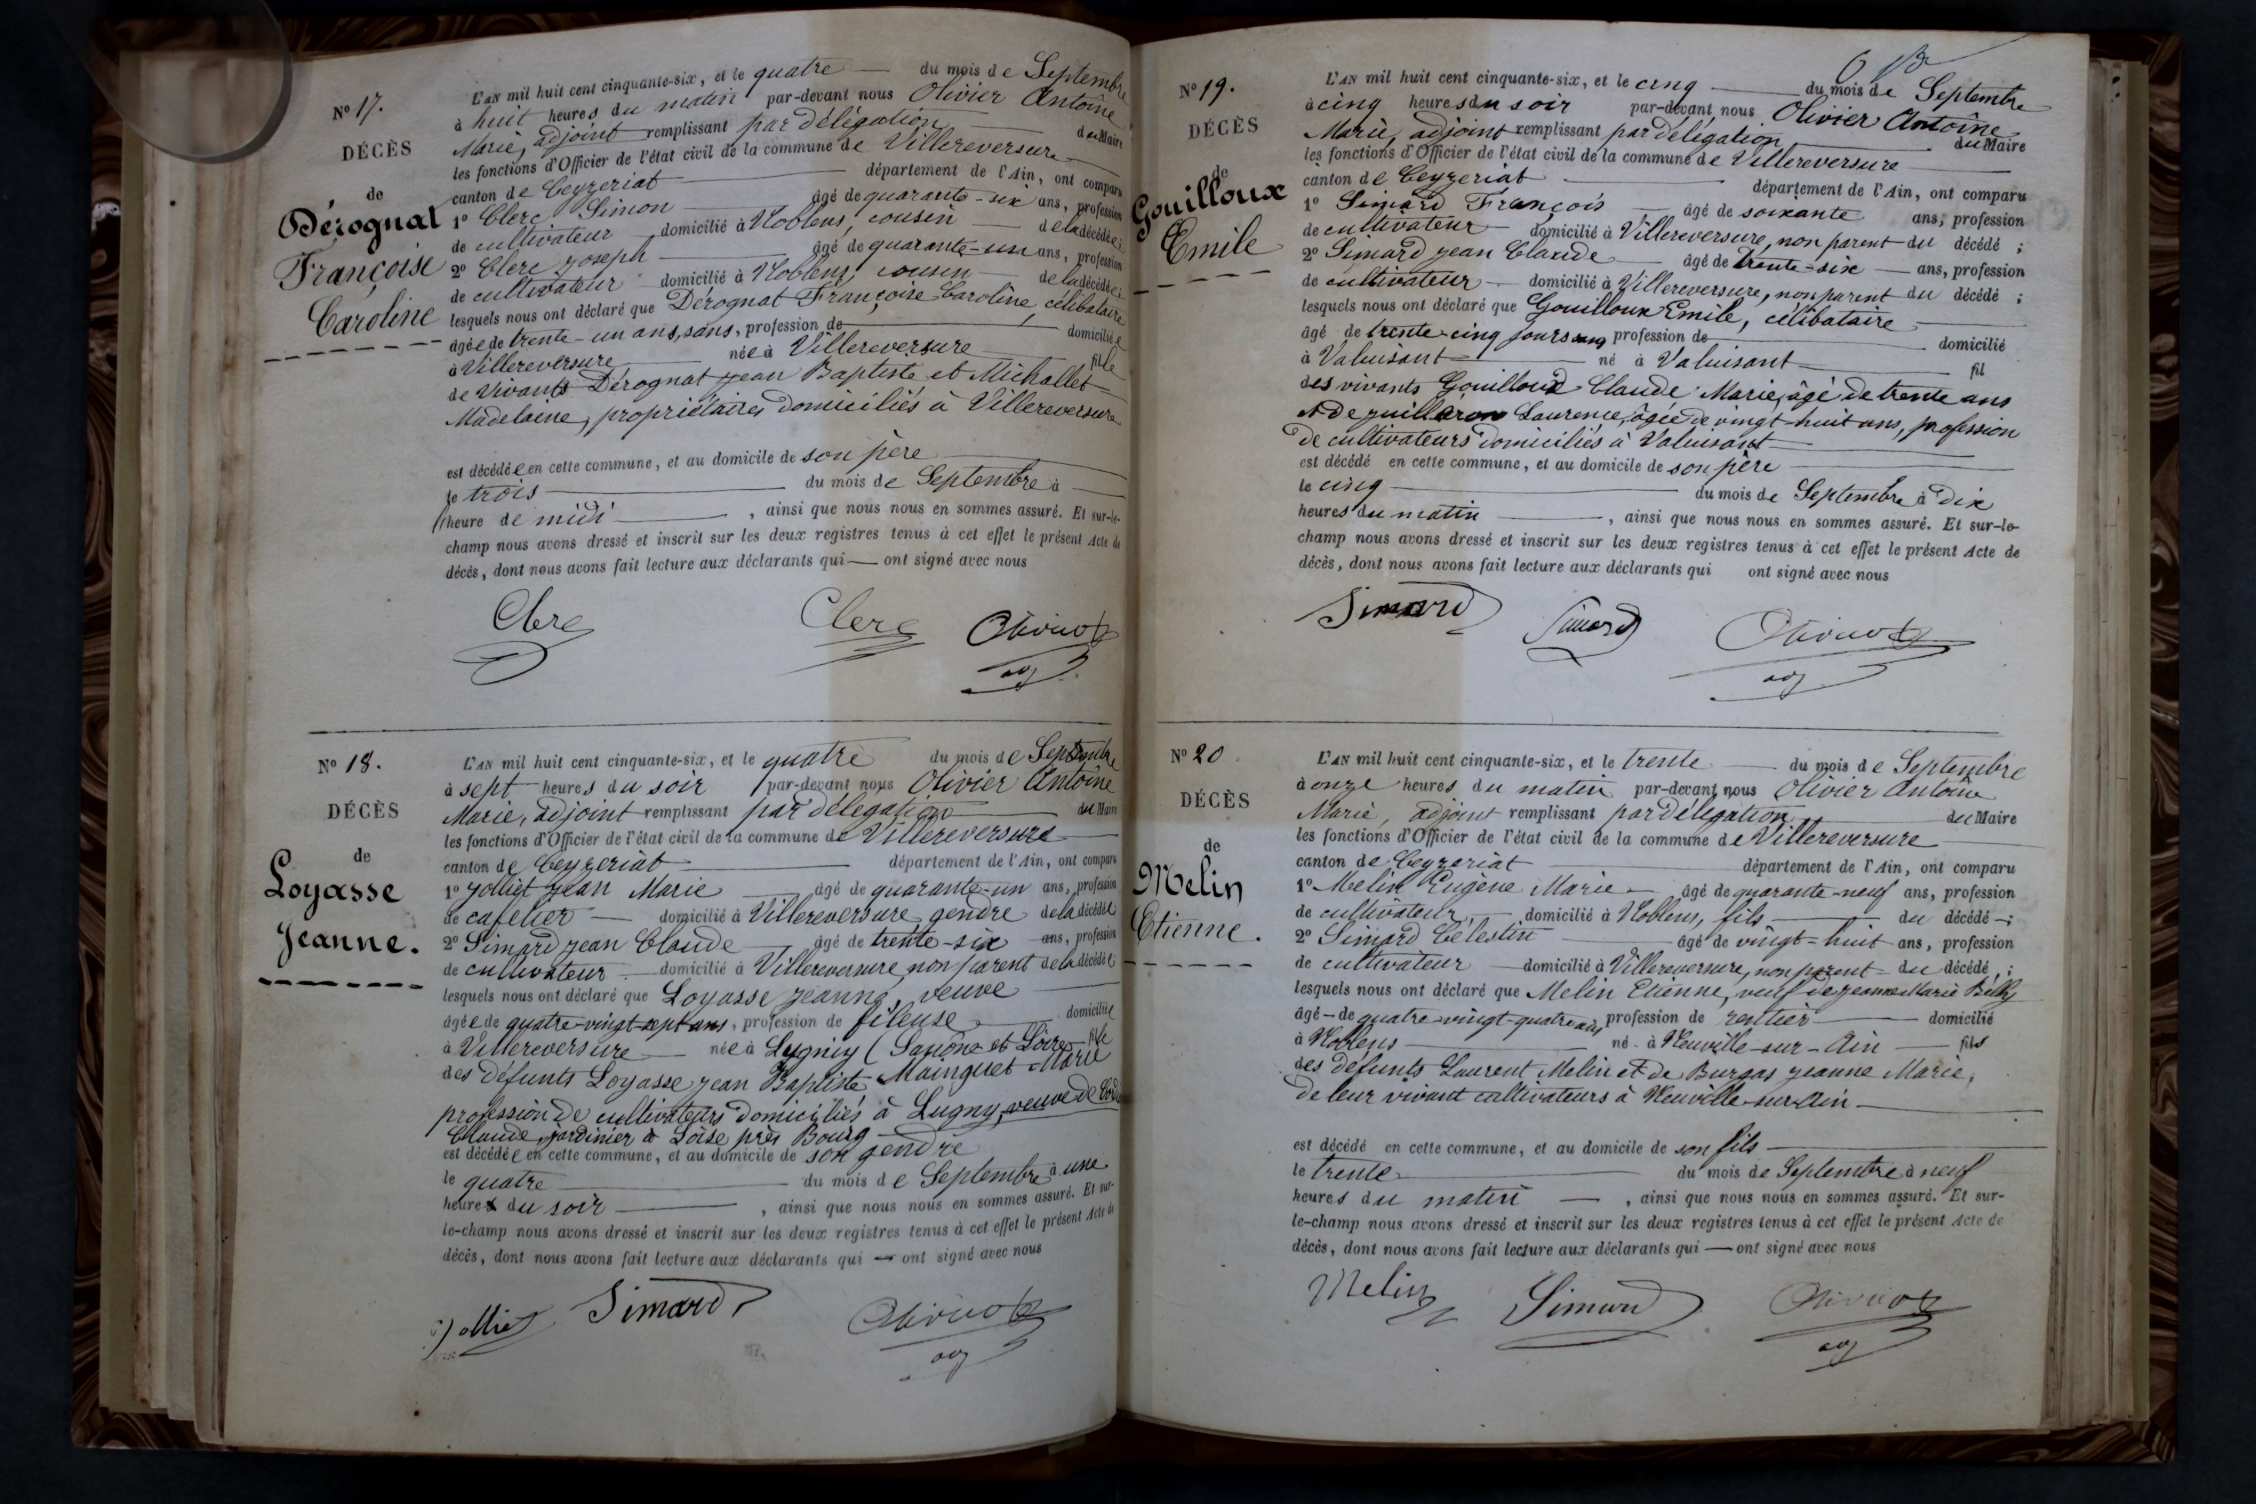 N° 17.
DÉCÈS
de
Dérognat
Françoise
Caroline
L'AN mil huit cent cinquante-six, et le quatre du mois de Septembre
à huit heures du matin par-devant nous Olivier Antoine
Marie, adjoint remplissant par délégation du Maire
les fonctions d'Officier de l'état civil de la commune de Villereversure
canton de Ceyzeriat département de l'Ain, ont comparu
1° Clerc Simon âgé de quarante-six ans, profession
de cultivateur domicilié à Noblens, cousin de la décédée;
2° Clerc Joseph âgé de quarante-un ans, profession
de cultivateur domicilié à Noblens, cousin de la décédée;
lesquels nous ont déclaré que Dérognat Françoise Caroline, célibataire
âgée de trente-un ans, sans, profession de domiciliée
à Villereversure née à Villereversure fille
de vivants Dérognat Jean Baptiste et Michallet
Madelaine, propriétaires domiciliés à Villereversure
est décédée en cette commune, et au domicile de son père
le trois du mois de Septembre à
heure de midi, ainsi que nous nous en sommes assuré. Et sur-le-
champ nous avons dressé et inscrit sur les deux registres tenus à cet effet le présent Acte de
décès, dont nous avons fait lecture aux déclarants qui ont signé avec nous
Clerc Clerc Olivier
adj
N° 18.
DÉCÈS
de
Loyasse
Jeanne.
L'AN mil huit cent cinquante-six, et le quatre du mois de Septembre
à sept heures du soir par-devant nous Olivier Antoine
Marie, adjoint remplissant par délégation du Maire
les fonctions d'Officier de l'état civil de la commune de Villereversure
canton de Ceyzeriat département de l'Ain, ont comparu
1° Jolliet Jean Marie âgé de quarante-un ans, profession
de cafetier domicilié à Villereversure gendre de la décédée
2° Simard Jean Claude âgé de trente-six ans, profession
de cultivateur domicilié à Villereversure, non parent de la décédée
lesquels nous ont déclaré que Loyasse Jeanne, veuve
âgée de quatre-vingt-sept ans, profession de fileuse domiciliée
à Villereversure née à Lugniy (Saône et Loire fille
des défunts Loyasse Jean Baptiste Mainguet Marie
profession de cultivateurs domiciliés à Lugny, veuve de
Claude, jardinier à Loise près Bourg
est décédée en cette commune, et au domicile de son gendre
le quatre du mois de Septembre à une
heure du soir, ainsi que nous nous en sommes assuré. Et sur-
le-champ nous avons dressé et inscrit sur les deux registres tenus à cet effet le présent Acte de
décès, dont nous avons fait lecture aux déclarants qui ont signé avec nous
Jolliet Simard Olivier
adj
N° 19.
DÉCÈS
de
Gouilloux
Emile
L'AN mil huit cent cinquante-six, et le cinq du mois de Septembre
à cinq heures du soir par-devant nous Olivier Antoine
Marie, adjoint remplissant par délégation du Maire
les fonctions d'Officier de l'état civil de la commune de Villereversure
canton de Ceyzeriat département de l'Ain, ont comparu
1° Simard François âgé de soixante ans, profession
de cultivateur domicilié à Villereversure, non parent du décédé;
2° Simard Jean Claude âgé de trente-six ans, profession
de cultivateur domicilié à Villereversure, non parent du décédé;
lesquels nous ont déclaré que Gouilloux Emile, célibataire
âgé de trente-cinq jours sans profession de domicilié
à Valuisant né à Valuisant fil
des vivants Gouilloux Claude Marie, âgé de trente ans
et de Juilleron Laurence, âgée de vingt-huit ans, profession
de cultivateurs domiciliés à Valuisant
est décédé en cette commune, et au domicile de son père
le cinq du mois de Septembre à dix
heures du matin, ainsi que nous nous en sommes assuré. Et sur-le-
champ nous avons dressé et inscrit sur les deux registres tenus à cet effet le présent Acte de
décès, dont nous avons fait lecture aux déclarants qui ont signé avec nous
Simard Simard Olivier
adj
N° 20
DÉCÈS
de
Melin
Etienne.
L'AN mil huit cent cinquante-six, et le trente du mois de Septembre
à onze heures du matin par-devant nous Olivier Antoine
Marie, adjoint remplissant par délégation du Maire
les fonctions d'Officier de l'état civil de la commune de Villereversure
canton de Ceyzeriat département de l'Ain, ont comparu
1° Melin Eugène Marie âgé de quarante-neuf ans, profession
de cultivateur, domicilié à Noblens, fils du décédé;
2° Simard Célestin âgé de vingt-huit ans, profession
de cultivateur domicilié à Villereversure, non parent du décédé;
lesquels nous ont déclaré que Melin Etienne, veuf de Jeanne Marie Billy
âgé de quatre-vingt-quatre ans profession de rentier domicilié
à Noblens né à Neuville-sur-Ain fils
des défunts Laurent Melin et de Burgas Jeanne Marie,
de leur vivant cultivateurs à Neuville-sur-Ain
est décédé en cette commune, et au domicile de son fils
le trente du mois de Septembre à neuf
heures du matin, ainsi que nous nous en sommes assuré. Et sur-
le-champ nous avons dressé et inscrit sur les deux registres tenus à cet effet le présent Acte de
décès, dont nous avons fait lecture aux déclarants qui ont signé avec nous
Melin Simard Olivier
adj